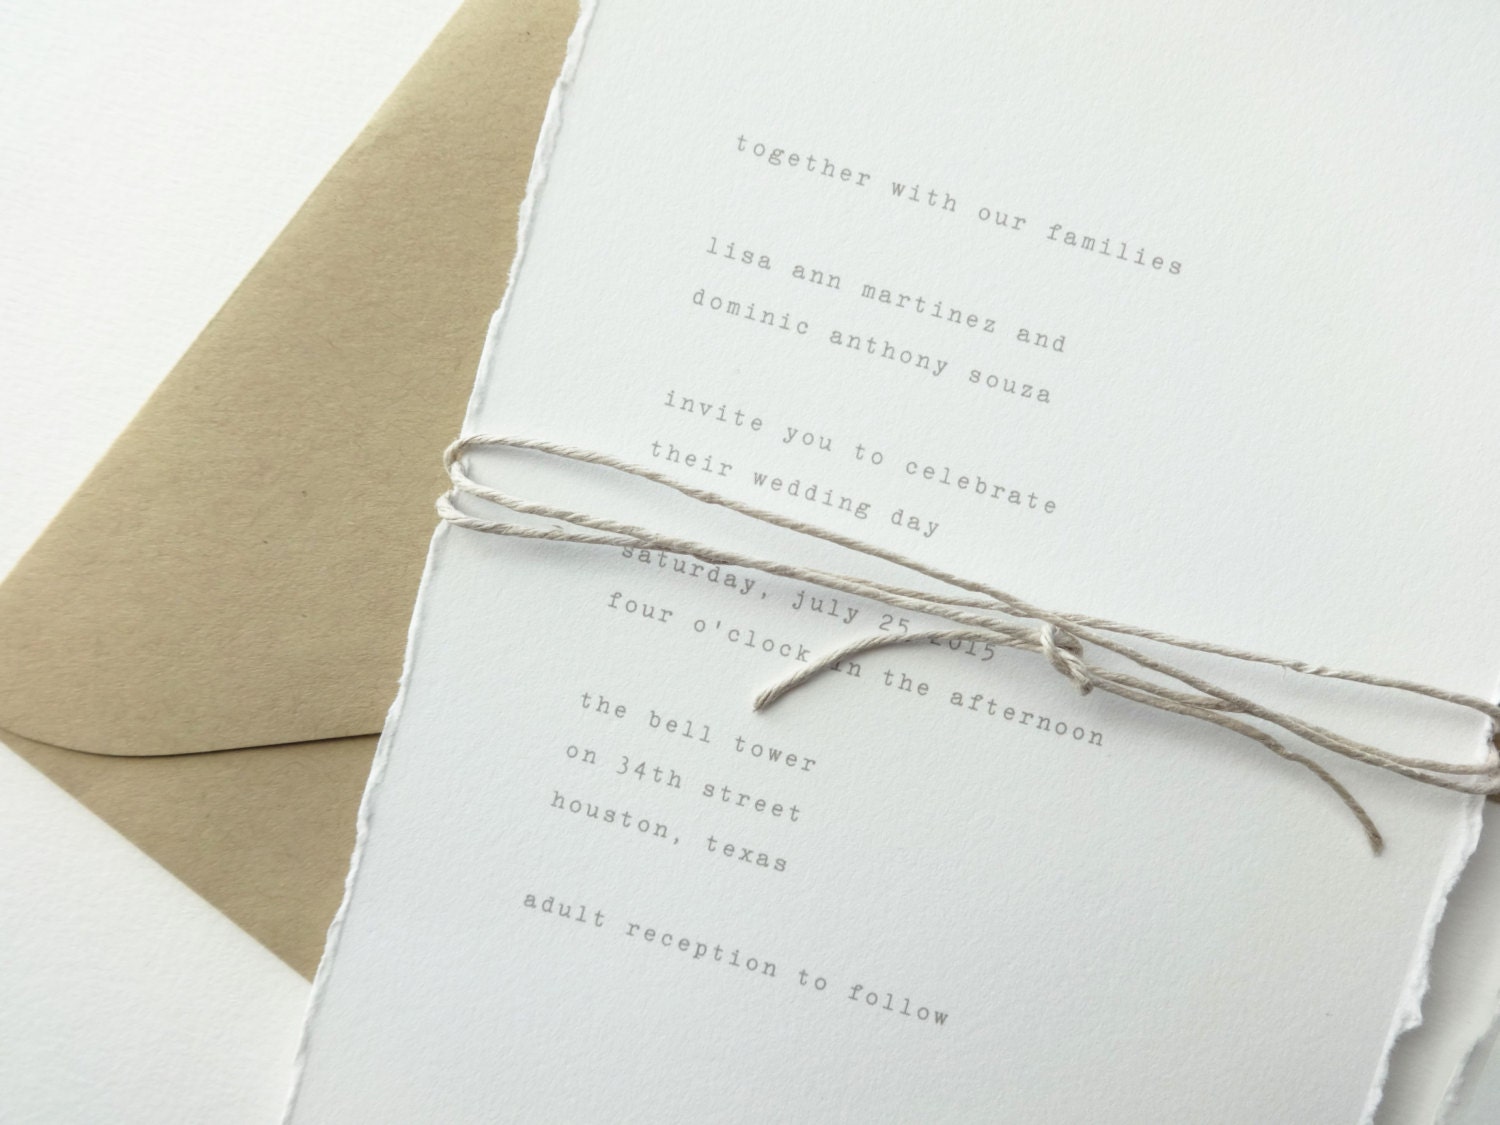 together with our families
lisa ann martinez and
dominic anthony souza
invite you to celebrate
their wedding day
saturday, july 25, 2015
four o'clock in the afternoon
the bell tower
on 34th street
houston, texas
adult reception to follow